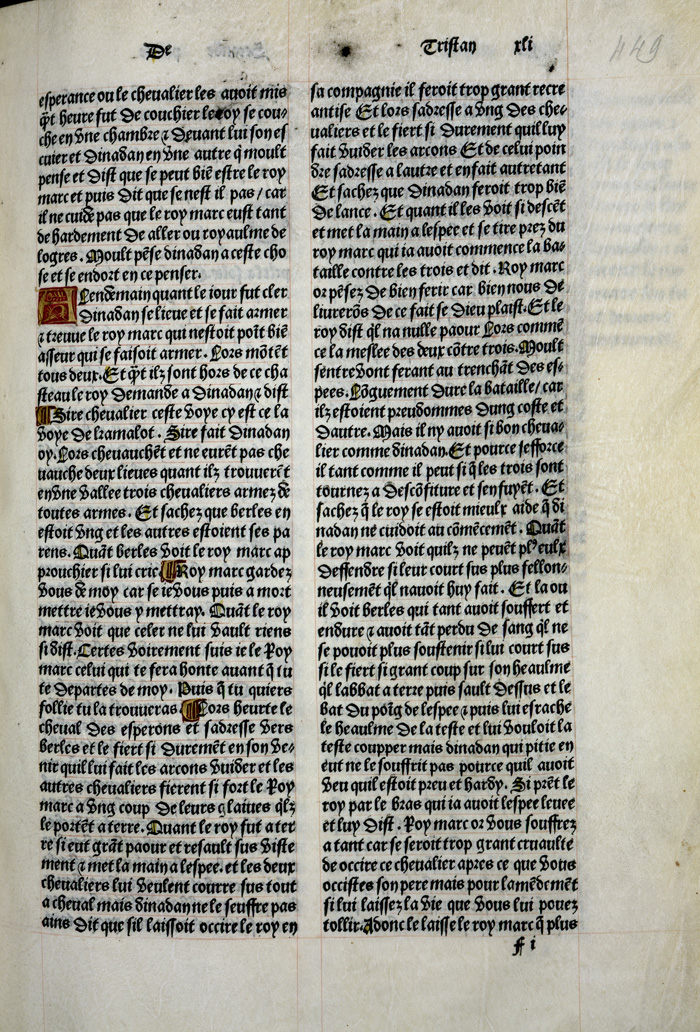 De
Tristan xli
449
esperance ou le cheualier les auoit mis
q̄t heure fut De couchier le roy se cou-
che en vne chambre ⁊ Deuant lui son es
cuier et Dinadan en vne autre q̄ moult
pense et Dist que se peut biē estre le roy
marc et puis Dit que se nest il pas / car
il ne cuide pas que le roy marc eust tant
de hardement De aller ou royaulme de
logres. Moult pēse dinadan a ceste cho
se et se endort en ce penser.
Lendemain quant le iour fut cler
Dinadan se lieue et se fait armer
⁊ treuue le roy marc qui nestoit poīt biē
asseur qui se faisoit armer. Lors mōtēt
tous deux. Et q̄t ilz sont hors de ce cha
steau le roy Demande a Dinadan ⁊ dist
Sire cheualier ceste voye cy est ce la
voye De kramalot. Sire fait Dinadan
oy. Lors cheuauchēt et ne eurēt pas che
uauche deux lieues quant ilz trouuerēt
en vne vallee trois cheualiers armez de
toutes armes. Et sachez que berles en
estoit vng et les autres estoient ses pa
rens. Quāt berles voit le roy marc ap
prouchier si lui crie Roy marc gardez
vous de moy car se ie vous puis a mort
mettre ie vous y mettray. Quāt le roy
marc voit que celer ne lui vault riens
si dist. Certes voirement suis ie le Roy
marc celui qui te fera honte auant q̄ tu
te Departes de moy. Puis q̄ tu quiers
follie tu la trouueras. Lors heurte le
cheual Des esperons et sadresse vers
berles et le fiert si Duremēt en son ve-
nir quil lui fait les arcons vuider et les
autres cheualiers fierent si fort le Roy
marc a vng coup De leurs glaiues q̄lz
le portēt a terre. Quant le roy fut a ter
re si eut grāt paour et resault sus viste
ment ⁊ met la main a lespee. et les deux
cheualiers lui veulent courre sus tout
a cheual mais dinadan ne le seuffre pas
ains Dit que sil laissoit occire le roy en
sa compagnie il feroit trop grant recre
antise Et lors sadresse a vng Des che-
ualiers et le fiert si Durement quil luy
fait vuider les arcons Et De celui poin
dre sadresse a lautre et en fait autretant
Et sachez que Dinadan feroit trop biē
De lance. Et quant il les voit si descēt
et met la main a lespee et se tire prez du
roy marc qui ia auoit commence la ba-
taille contre les trois et dit. Roy marc
or pēsez De bien ferir car bien nous De
liurerōs De ce fait se Dieu plaist. Et le
roy dist q̄l na nulle paour Lors commē
ce la meslee des deux cōtre trois. Moult
sentreuont ferant au trenchāt Des es-
pees. Lōguement Dure la bataille / car
ilz estoient preudommes Dung coste et
Dautre. Mais il ny auoit si bon cheua-
lier comme dinadan. Et pource sefforce
il tant comme il peut si q̄ les trois sont
tournez a Descōfiture et sen fuyēt. Et
sachez q̄ le roy se estoit mieulx aide q̄ di
nadan ne cuidoit au cōmēcemēt. Quāt
le roy marc voit quilz ne peuēt plꝰ eulx
Deffendre si leur court sus plus fellon-
neusemēt q̄l nauoit huy fait. Et la ou
il voit berles qui tant auoit souffert et
endure ⁊ auoit tāt perdu De sang q̄l ne
se pouoit plus soustenir si lui court sus
si le fiert si grant coup sur son heaulme
q̄l labbat a terre puis sault Dessus et le
bat Du poīg de lespee ⁊ puis lui esrache
le heaulme De la teste et lui vouloit la
teste coupper mais dinadan qui pitie en
eut ne le souffrit pas pource quil auoit
veu quil estoit preu et hardy. Si prēt le
roy par le bras qui ia auoit lespee leuee
et luy Dist. Roy marc or vous souffrez
a tant car se seroit trop grant cruaulte
de occire ce cheualier apres ce que vous
occistes son pere mais pour lamēdemēt
si lui laissez la vie que vous lui pouez
tollir. Adonc le laisse le roy marc q̄ plus
ff i